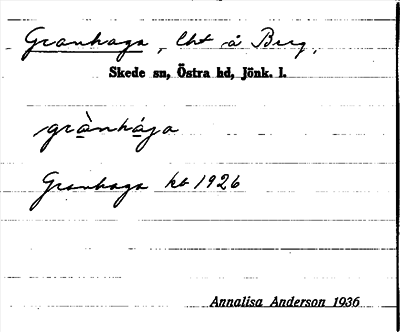 Granhaga, lht å Berg,
Skede sn, Östra hd, Jönk. l.
grànhága
Granhaga kb 1926
Annalisa Anderson 1936